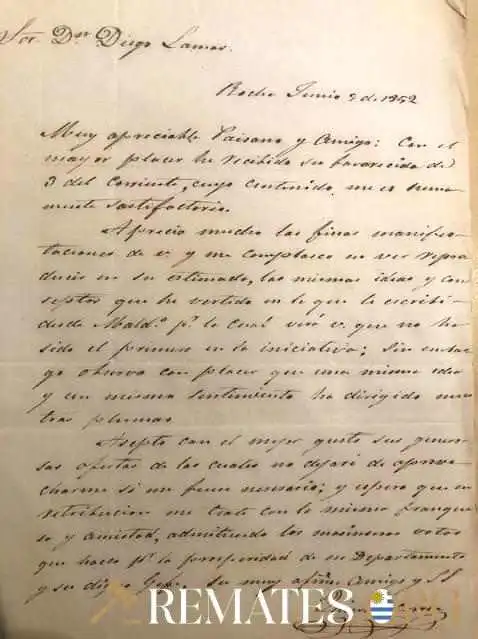 Sor. Dn Diego Lamas.
Rocha Junio 9 de 1852
Muy apreciable Paisano y Amigo: Con el
mayor placer he recibido su favorecida de
3 del corriente, cuyo contenido me es suma-
mente sastifactorio.
Aprecio mucho las finas manifes-
taciones de v. y me complasco en ver repro
ducir en su estimada, las mismas ideas y con
septos que he vertido en la que le escribí
desde Mald.o p.r lo cual verá v. que no ha
sido el primero en la iniciativa; sin embar
go observo con placer que una misma idea
y un mismo sentimiento ha dirigido nues
tras plumas.
Asepto con el mejor gusto sus genero
sas ofertas de las cuales no dejaré de aprove
charme si me fuere necesario; y espero que en
retribucion me trate con la misma franque
sa y amistad, admitiendo los sinceros votos
que hago p.r la prosperidad de su Departamento
y su digno Gefe. Su muy afmo. Amigo y SS
REMATES